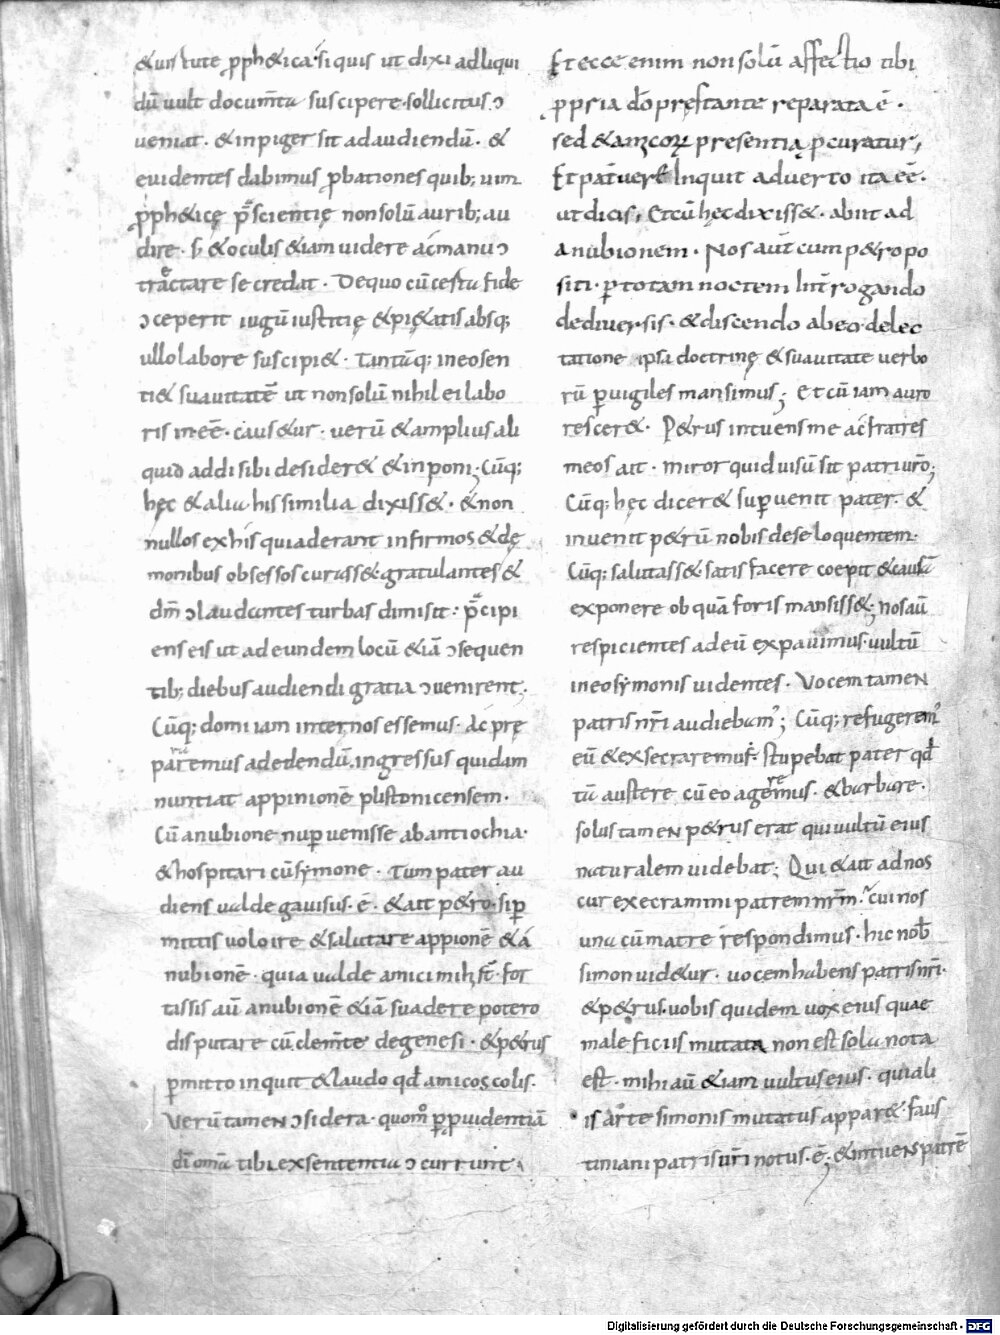 & uirtute ꝓph&ica· si quis ut dixi ad liqui
dū uult documt̄a suscipere· sollicitus ɔ
ueniat· & inpiger sit ad audiendū· &
euidentes dabimus ꝓbationes quib; uim
ꝓph&icę p̄scientię non solū aurib; au
dire· s; & oculis &iam uidere ac manu ɔ
tractare se credat· De quo cū certa fide
ɔceperit iugū iustitię & pi&atis absq;
ullo labore suscipi&· Tantūq; in eo sen
ti& suauitatē ut non solū nihil ei labo
ris inēē· caus&ur· uerū & amplius ali
quid addi sibi desider& & inponi; Cūq;
hęc & alia his similia dixiss&· & non
nullos ex his qui aderant infirmos & dę
monibus obsessos curass& gratulantes &
dm̄ ɔlaudantes turbas dimisit· p̄cipi
ens eis ut ad eundem locū &iā ɔsequen
tib; diebus audiendi gratia ɔuenirent·
Cūq; domi iam inter nos essemus· Ac prę
pararemus ad edendū, ingressus quidam
nuntiat appinionē plistonicensem·
Cū anubione nuꝑ uenisse ab antiochia·
& hospitari cū symone· Tum pater au
diens ualde gauisus· ē· & ait p&ro· si ꝑ
mittis uolo ire & salutare appionē & a
nubionē· quia ualde amici mihi st̄· for
tassis aū anubionē &iā suadere potero
disputare cū clem̄te de genesi· & p&rus
ꝑmitto inquit & laudo qd̄ amicos colis·
Verū tamen ɔsidera· quom̊ ꝑ ꝓuidentiā
dī om̄a tibi ex sententia ɔcurrunt·
Et ecce enim non solū affectio tibi
ꝓpria dō pręstante reparata ē·
sed & amicoꝝ presentia ꝓcuratur,
Et pat̄ uere Inquit aduerto ita ēē·
ut dicis, Et cū hęc dixiss&· abiit ad
anubionem· Nos aut̄ cum p&ro po
siti· ꝑ totam noctem Int̄rogando
de diuersis· & discendo ab eo delec
tatione ipsa doctrinę & suauitate uerbo
rū ꝑuigiles mansimus; Et cū iam auro
rescer&· P&rus intuens me ac fratres
meos ait· miror quid uisū sit patri ur̄o;
Cūq; hęc dicer& suꝑuenit pater· &
inuenit p&rū nobis de se loquentem·
Cūq; salutass& satis facere coepit & causā
exponere ob quā foris mansiss&; nos aū
respicientes ad eū expauimus· uultū
in eo symonis uidentes· Vocem tamen
patris nr̄i audiebam'; Cūq; refugerem'
eū & exsecraremur· stupebat pater qd̄
tā austere cū eo ageremus· & barbare·
solus tamen p&rus erat qui uultū eius
naturalem uidebat; Qui & ait ad nos
cur execramini patrem urm̄· cui nos
una cū matre respondimus· hic nob̄
simon uid&ur· uocem habens patris nr̄i·
& p&rus· uobis quidem uox eius quae
maleficiis mutata non est sola nota
est· mihi aū &iam uultus eius· qui ali
is arte simonis mutatus appar&· faus
tiniani patris ur̄i notus· ē; & intuens patrē
Digitalisierung gefördert durch die Deutsche Forschungsgemeinschaft - DFG